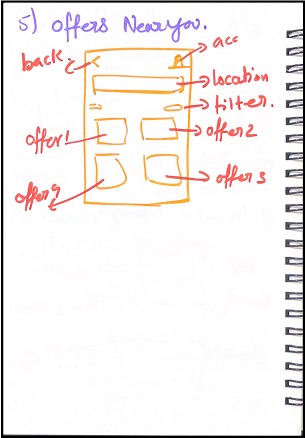 5) Offers Near you.
acc
back
location
filter.
offer1
offer2
offer4
offer3